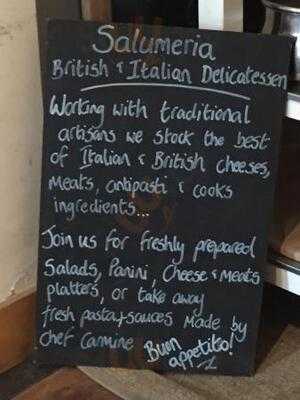 Salumeria
British & Italian Delicatessen
Working with traditional
artisans we stock the best
of Italian & British cheeses,
Meats, antipasti & cooks
ingredients...
Join us for freshly prepared
Salads, Panini, Cheese & Meats
platters, or take away
fresh pasta & sauces Made by
Chef Carmine
Buon
appetito!